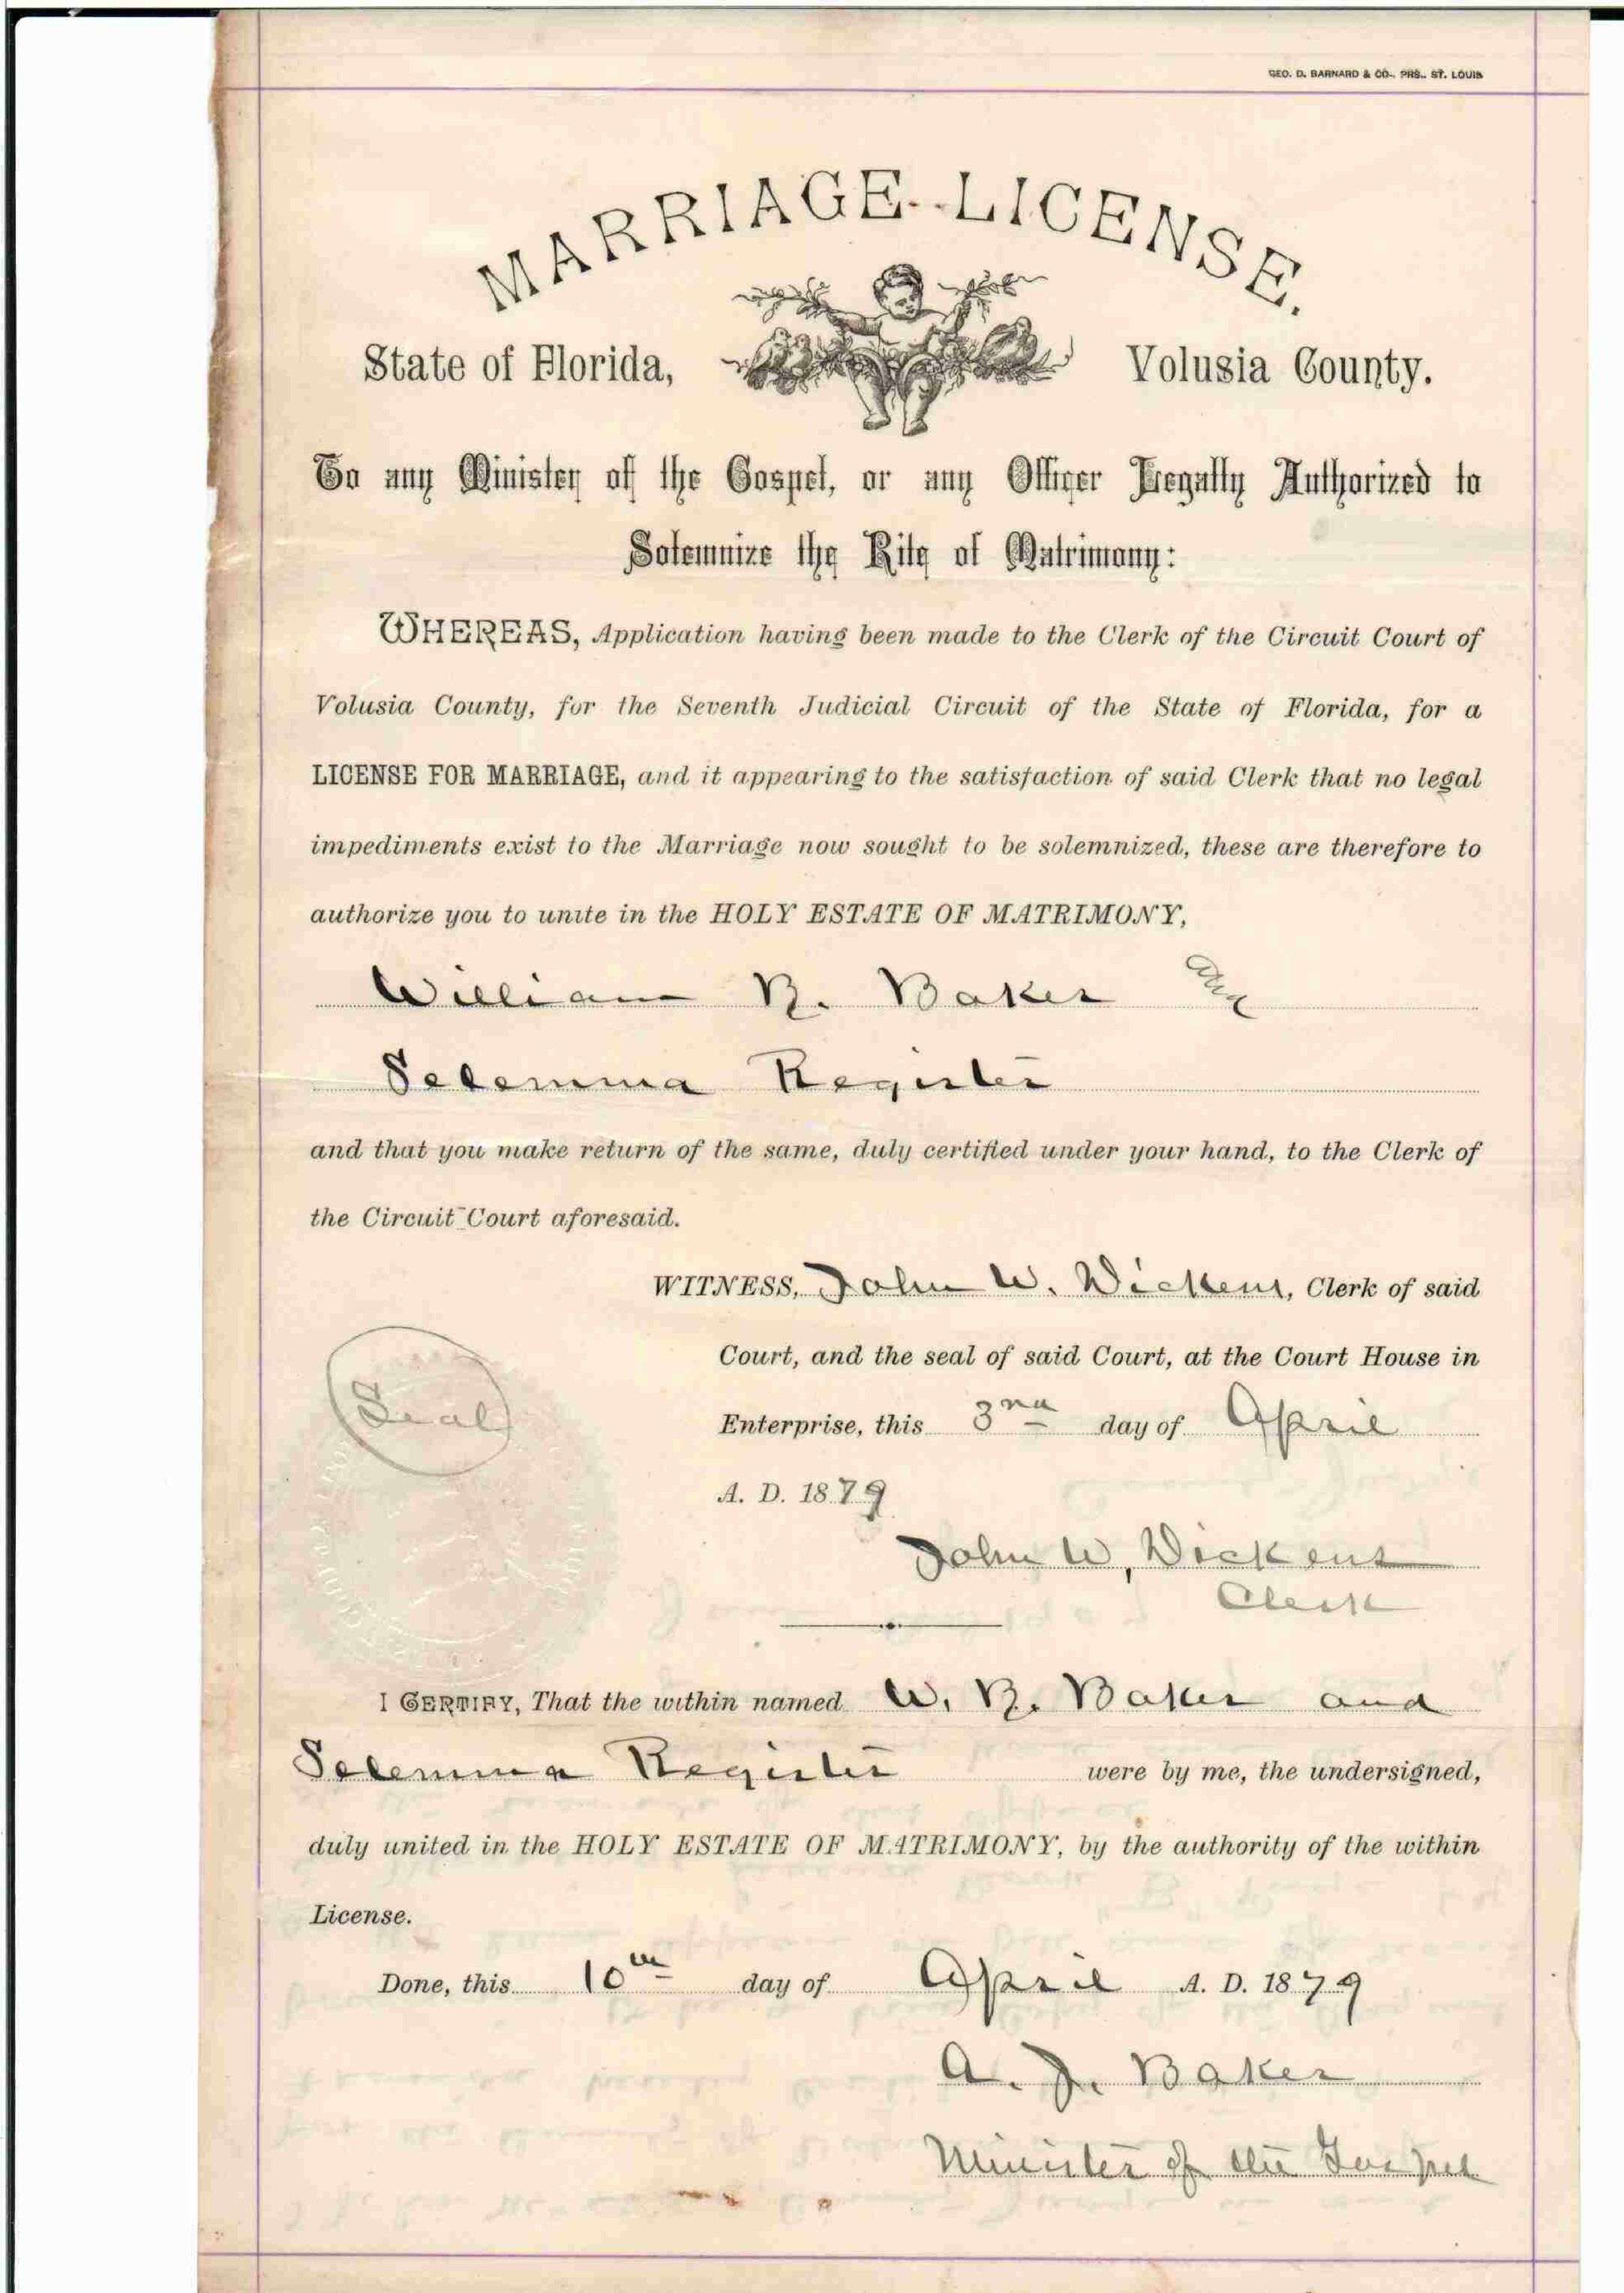 GEO. D. BARNARD & CO., PRS., ST. LOUIS
MARRIAGE LICENSE.
State of Florida, Volusia County.
To any Minister of the Gospel, or any Officer Legally Authorized to
Solemnize the Rite of Matrimony:
WHEREAS, Application having been made to the Clerk of the Circuit Court of
Volusia County, for the Seventh Judicial Circuit of the State of Florida, for a
LICENSE FOR MARRIAGE, and it appearing to the satisfaction of said Clerk that no legal
impediments exist to the Marriage now sought to be solemnized, these are therefore to
authorize you to unite in the HOLY ESTATE OF MATRIMONY,
William R. Baker and
Selemma Register
and that you make return of the same, duly certified under your hand, to the Clerk of
the Circuit Court aforesaid.
WITNESS, John W. Dickens, Clerk of said
Court, and the seal of said Court, at the Court House in
Seal
Enterprise, this 3rd day of April
A. D. 1879
John W, Dickens
Clerk
I CERTIFY, That the within named W. R. Baker and
Selemma Register were by me, the undersigned,
duly united in the HOLY ESTATE OF MATRIMONY, by the authority of the within
License.
Done, this 10th day of April A. D. 1879
A. J. Baker
Minister of the Gospel